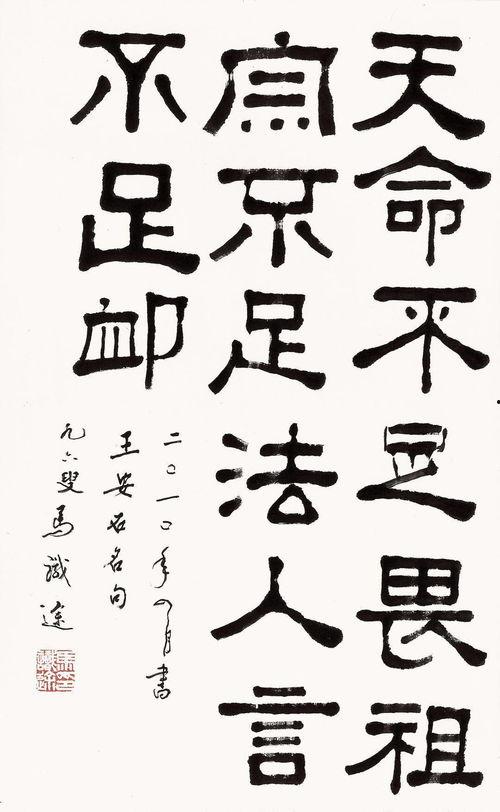 天命不足畏祖
宗不足法人言
不足卹
二〇一〇年四月書
王安石名句
九六叟馬識途